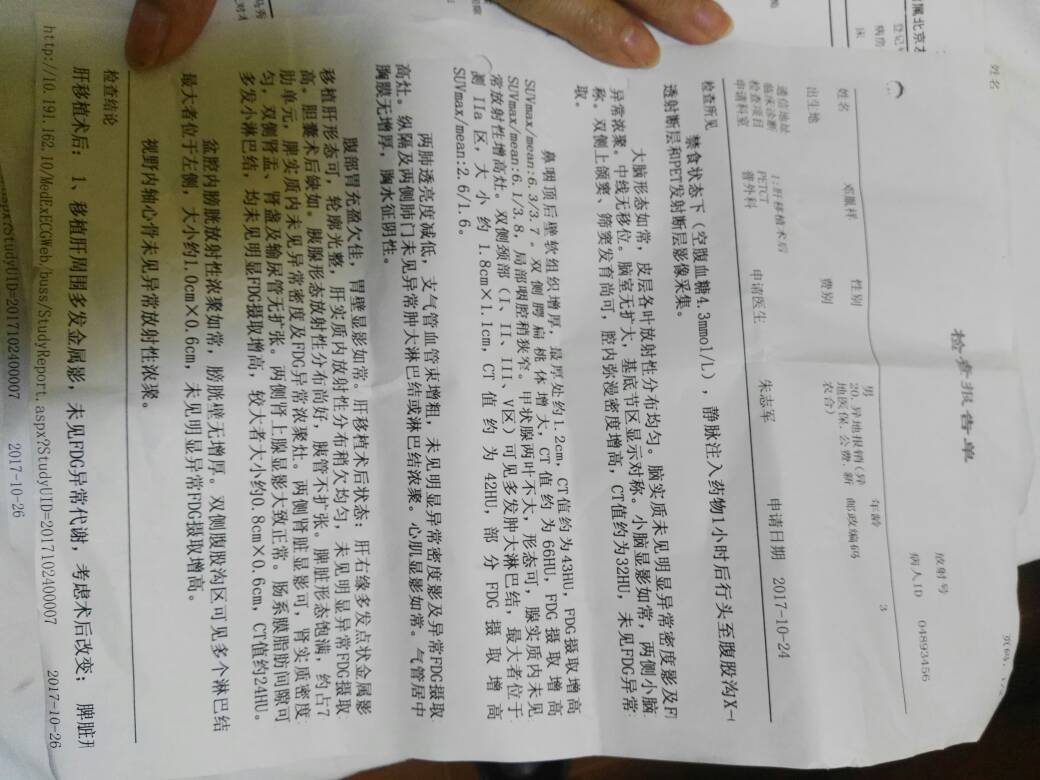 检查报告单
放射号
病人ID 04893456
姓名 性别 男 年龄 3
出生地 费别 20.异地报销(异地医保.公费.新农合) 邮政编码
通信地址
临床诊断 1:肝移植术后
检查项目 PETCT
申请科室 普外科 申请医生 朱志军 申请日期 2017-10-24
检查所见
禁食状态下（空腹血糖4.3mmol/L），静脉注入药物1小时后行头至腹股沟X-
透射断层和PET发射断层影像采集。
大脑形态如常，皮层各叶放射性分布均匀。脑实质未见明显异常密度影及F
异常浓聚。中线无移位。脑室无扩大，基底节区显示对称。小脑显影如常，两侧小脑
称。双侧上颌窦、筛窦发育尚可，腔内弥漫密度增高，CT值约为32HU，未见FDG异常
取。
鼻咽顶后壁软组织增厚，最厚处约1.2cm，CT值约为43HU，FDG摄取增高
SUVmax/mean:6.3/3.7。双侧腭扁桃体增大，CT值约为66HU，FDG摄取增高
SUVmax/mean:6.1/3.8，局部咽腔稍狭窄。甲状腺两叶不大，形态可，腺实质内未见
常放射性增高灶。双侧颈部（I、II、III、V区）可见多发肿大淋巴结，最大者位于
测IIa区，大小约1.8cm×1.1cm，CT值约为42HU，部分FDG摄取增高
SUVmax/mean:2.6/1.6。
两肺透亮度减低，支气管血管束增粗，未见明显异常密度影及异常FDG摄取
高灶。纵隔及两侧肺门未见异常肿大淋巴结或淋巴结浓聚。心肌显影如常。气管居中
胸膜无增厚，胸水征阴性。
腹部胃充盈欠佳，胃壁显影如常。肝移植术后状态：肝右缘多发点状金属影
移植肝形态可，轮廓光整，肝实质内放射性分布稍欠均匀，未见明显异常FDG摄取
高。胆囊术后缺如。胰腺形态放射性分布尚好，胰管不扩张。脾脏形态饱满，约占7
肋单元，脾实质内未见异常密度及FDG异常浓聚灶。两侧肾脏显影可，肾实质密度
匀，双侧肾盂、肾盏及输尿管无扩张。两侧肾上腺显影大致正常。肠系膜脂肪间隙可
多发小淋巴结，均未见明显FDG摄取增高，较大者大小约0.8cm×0.6cm，CT值约24HU。
盆腔内膀胱放射性浓聚如常，膀胱壁无增厚。双侧腹股沟区可见多个淋巴结
最大者位于左侧，大小约1.0cm×0.6cm，未见明显异常FDG摄取增高。
视野内轴心骨未见异常放射性浓聚。
检查结论
肝移植术后：1、移植肝周围多发金属影，未见FDG异常代谢，考虑术后改变；脾脏
http://10.191.162.10/MedExECGWeb/buss/StudyReport.aspx?StudyUID=2017102400007 2017-10-26
aspx?StudyUID=2017102400007 2017-10-26
姓名
属北京友
病房
床